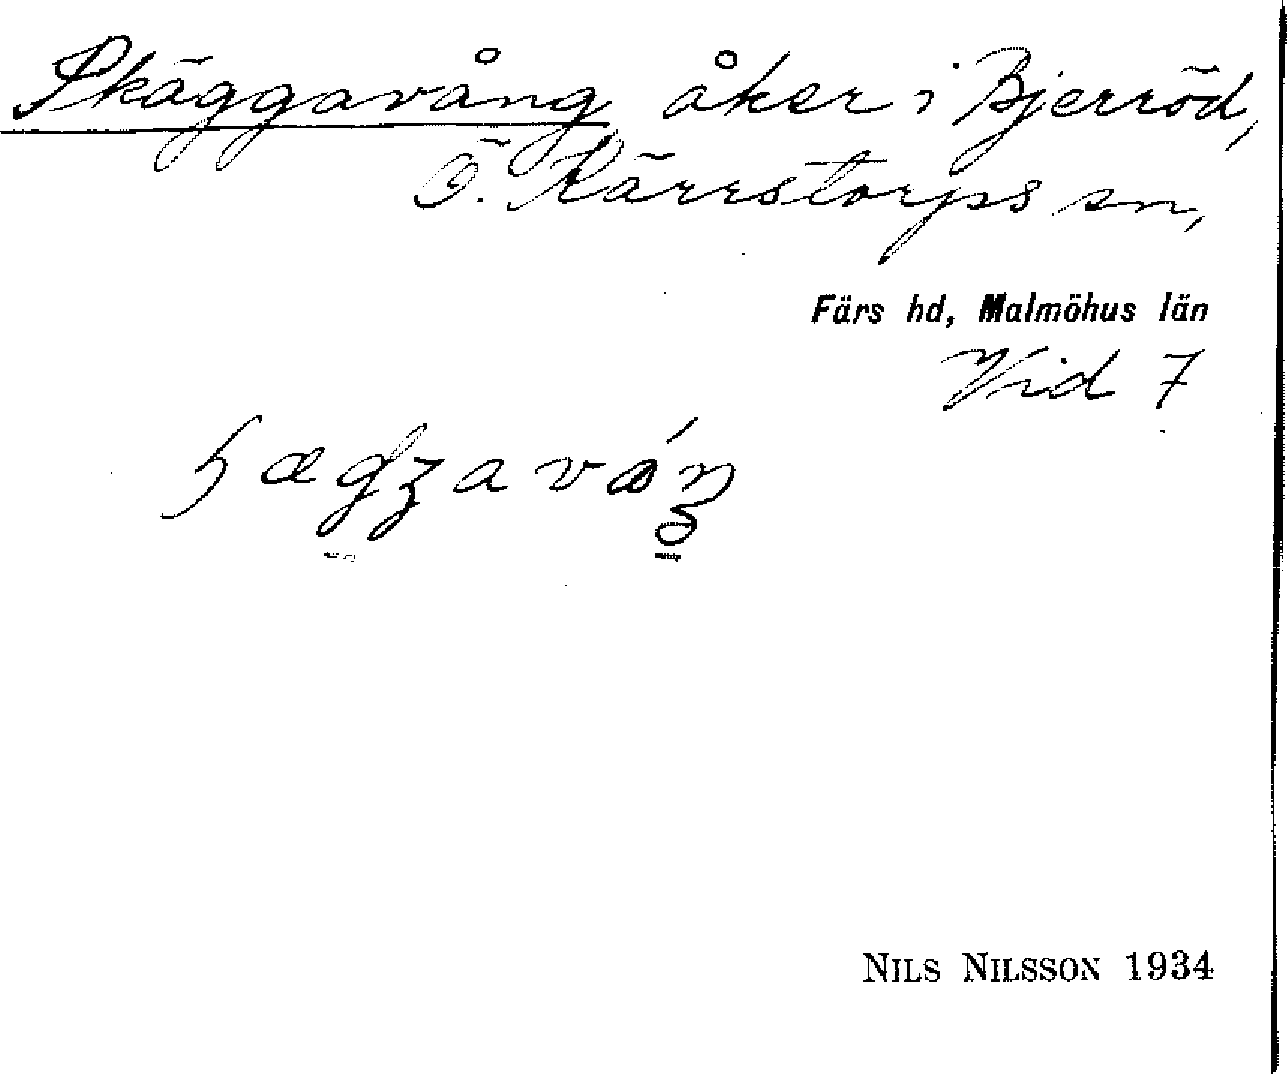 Skäggavång åker i Bjerröd,
Ö. Kärrstorps sn,
Färs hd, Malmöhus län
Vid 7
NILS NILSSON 1934